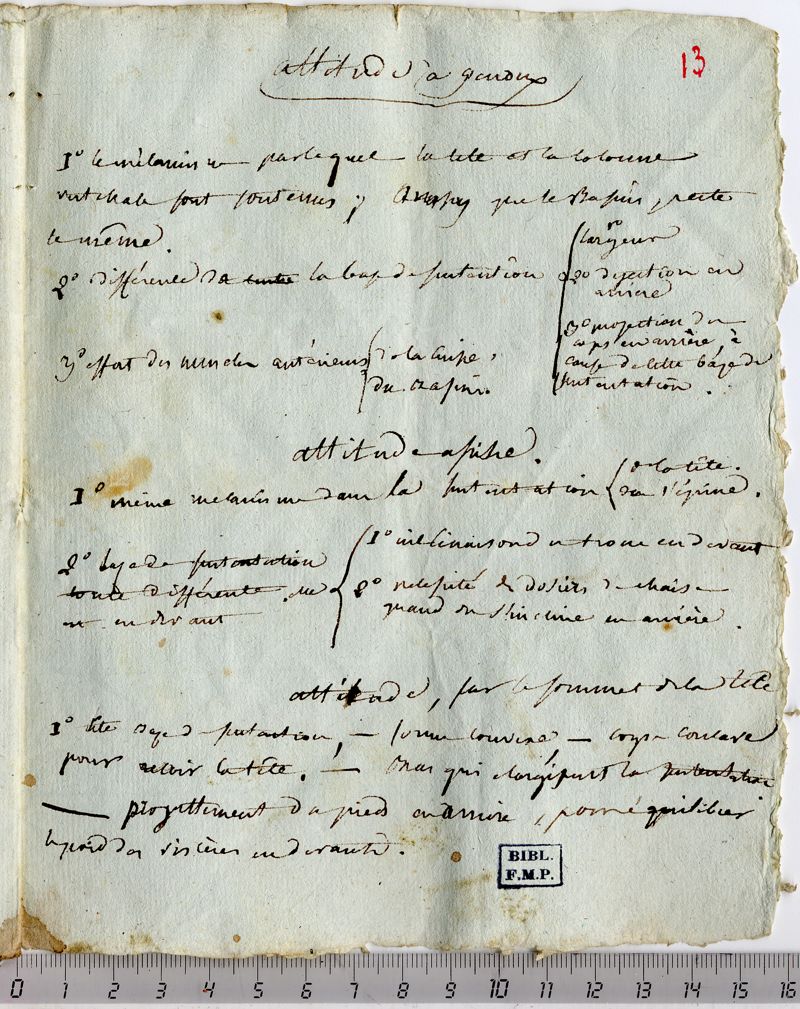 13
attitude à genoux
1° le mécanisme par lequel la tete et la colonne
vertebrale sont soutenus, que le Bassin, reste
le même.
2° différence de la base de sustentation
1° largeur
2° dejection en
arriere
3° projection du
corps en arrière, à
cause de cette base de
sustentation.
3° effort des muscles antérieurs
de la cuisse,
du bassin.
attitude assise.
1° même mecanisme dans la sustentation
de la tête.
de l'épine.
2° base de sustentation
toute différente. elle
est en devant
1° inclinaison du tronc en devant
2° necessité de dossiers de chaise
quand on s'incline en arrière.
attitude, sur le sommet de la tête
1° tête base de sustentation, — forme convexe, — corps concave
pour la tête. — bras qui elargissent la sustentation
— projettement des pieds en arriere, pour équilibrer
le poid des viscères en devant.
BIBL.
F.M.P.
0 1 2 3 4 5 6 7 8 9 10 11 12 13 14 15 16